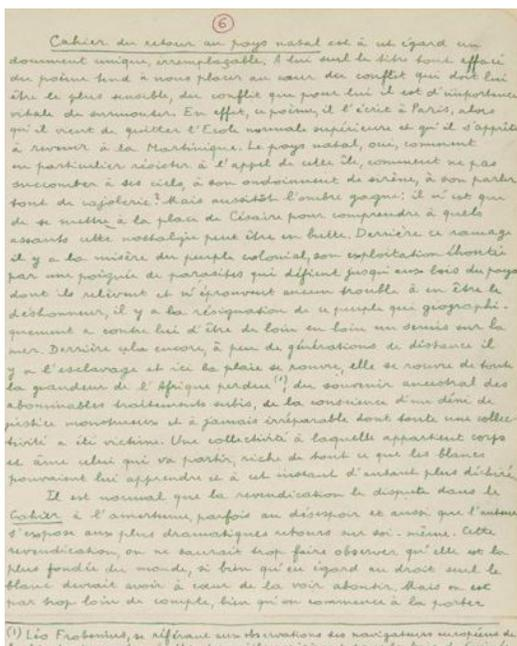 6
Cahier du retour au pays natal est à cet égard un
document unique, irremplaçable. A lui seul le titre tout effacé
du poème tend à nous placer au cœur du conflit qui doit lui
être le plus sensible, du conflit que pour lui il est d'importance
vitale de surmonter. En effet, ce poème, il l'écrit à Paris, alors
qu'il vient de quitter l'Ecole normale supérieure et qu'il s'apprête
à revenir à la Martinique. Le pays natal, oui, comment
en particulier résister à l'appel de cette île, comment ne pas
succomber à ses ciels, à son ondoiement de sirène, à son parler
tout de cajolerie? Mais aussitôt l'ombre gagne: il n'est que
de se mettre à la place de Césaire pour comprendre à quels
assauts cette nostalgie peut être en butte. Derrière ce ramage
il y a la misère du peuple colonial, son exploitation éhontée
par une poignée de parasites qui défient jusqu'aux lois du pays
dont ils relèvent et n'éprouvent aucun trouble à en être le
déshonneur, il y a la résignation de ce peuple qui géographi-
quement a contre lui d'être de loin en loin un semis sur la
mer. Derrière cela encore, à peu de générations de distance il
y a l'esclavage et ici la plaie se rouvre, elle se rouvre de toute
la grandeur de l'Afrique perdue (1), du souvenir ancestral des
abominables traitements subis, de la conscience d'un déni de
justice monstrueux et à jamais irréparable dont toute une collec-
tivité a été victime. Une collectivité à laquelle appartient corps
et âme celui qui va partir, riche de tout ce que les blancs
pouvaient lui apprendre et à cet instant d'autant plus déchiré.
Il est normal que la revendication le dispute dans le
Cahier à l'amertume, parfois au désespoir et aussi que l'auteur
s'expose aux plus dramatiques retours sur soi-même. Cette
revendication, on ne saurait trop faire observer qu'elle est la
plus fondée du monde, si bien qu'eu égard au droit seul le
blanc devrait avoir à cœur de la voir aboutir. Mais on est
par trop loin de compte, bien qu'on commence à la porter
(1) Léo Frobenius, se référant aux observations des navigateurs européens de